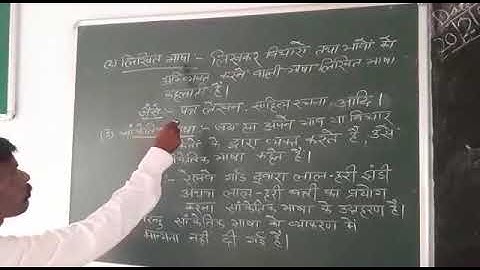 (2) लिखित भाषा - लिखकर विचारों तथा भावों को
अभिव्यक्त करने वाली भाषा लिखित भाषा
कहलाती है।
जैसे - पत्र लेखन, साहित्य रचना आदि।
(3) भाषा - जब हम अपने भाव या विचार
के द्वारा व्यक्त करते हैं, उसे
भाषा कहते हैं।
- रेलवे गार्ड द्वारा लाल-हरी झंडी
अथवा लाल-हरी बत्ती का प्रयोग
करना सांकेतिक भाषा के उदाहरण हैं।
सांकेतिक भाषा को व्याकरण में
मान्यता नहीं दी गई है।
Date